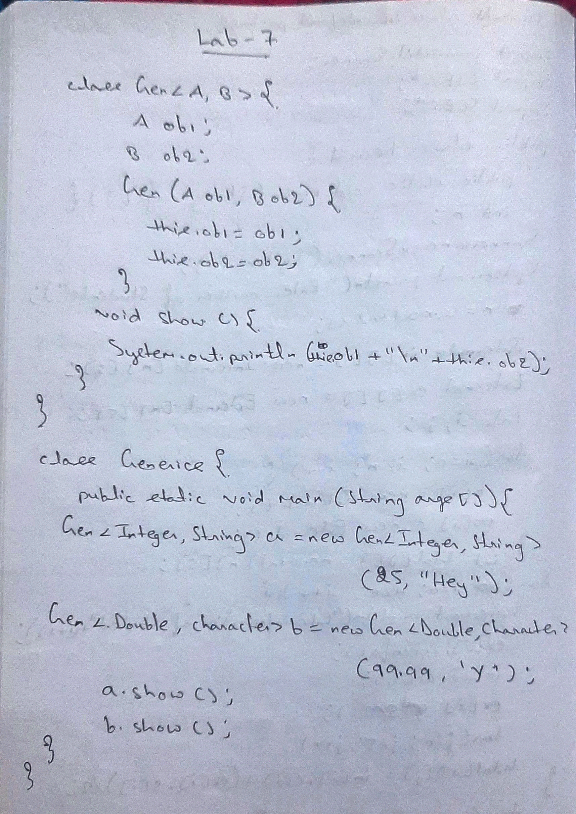 Lab-7
class Gen<A, B>{
A ob1;
B ob2;
Gen (A ob1, B ob2) {
this.ob1 = ob1;
this.ob2 = ob2;
}
void show () {
System.out.println (this.ob1 + "\n" + this.ob2);
}
}
class Generics {
public static void main (String args[]){
Gen <Integer, String> a = new Gen<Integer, String>
(25, "Hey");
Gen <Double, character> b = new Gen <Double, Character>
(99.99, 'Y');
a.show ();
b.show ();
}
}